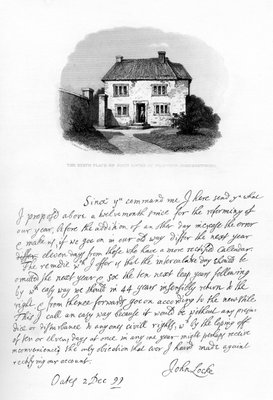 THE BIRTH PLACE OF JOHN LOCKE AT WRINGTON, SOMERSETSHIRE.
Since yͬ command me I have send yͧ what
I proposd above a twelvemonth since for the reforming of
our year, before the addition of an other day increase the error
& make us, if we goe on in our old way differ the next year
eleven days from those who have a more rectified Calendar.
The remedie wᶜʰ I offer is that the intercalar day should be
omitted the next year & soe the ten next leap years following
by wᶜʰ easy way we should in 44 years insensibly return to the
right & from thence forwards goe on according to the new stile.
This I call an easy way because it would be without any preju-
dice or disturbance to any ones civill rights, wᶜʰ by the lopping off
of ten or eleven days at once in any one year might perhaps receive
inconvenience, the only objection that ever I heard made against
rectifying our account.
John Locke
Oates 2 Dec 99